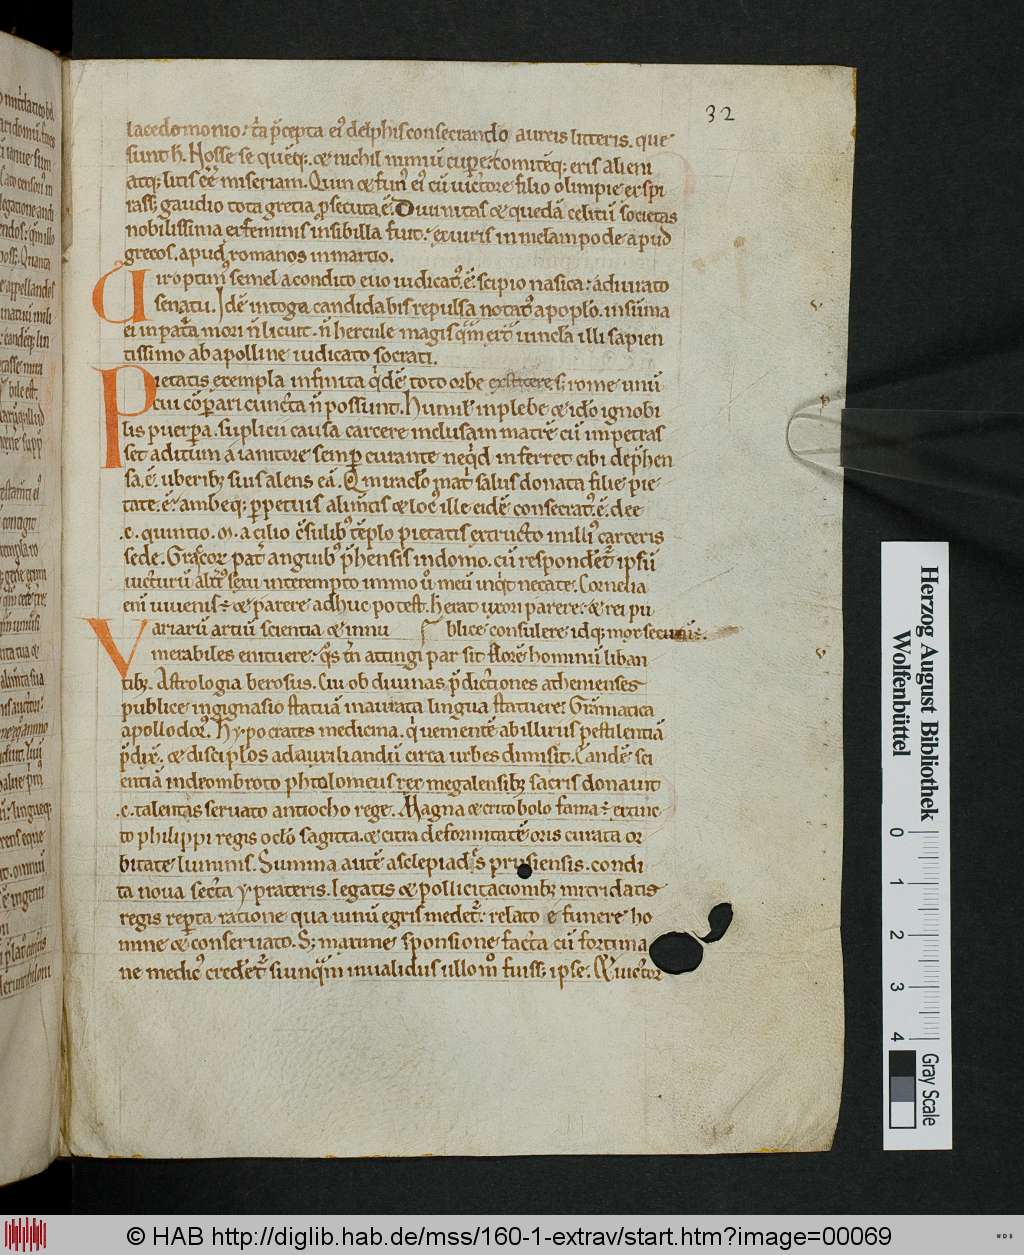 32
lacedomonio: t̃a p̃cepta ei᾽ delphis consecrando aureis litteris. que
sunt h̄. Nosse se quēq;. & nichil nimiū cupere: comitēq; eris alieni
atq; litis ēē miseriam. Quin & fun᾽ ei᾽ cū uictore filio olimpie exspi
rass; gaudio tota grecia p̱secuta.ē. Diuinitas & quedā celitū societas
nobilissima ex feminis in sibilla fuit: ex uiris in melampode apud
grecos. apud romanos in martio.
Uir optim᾽ semel a condito euo iudicat᾽.ē. scipio nasica: a iurato
senatu. Idē in toga candida bis repulsa notat᾽ a poplo. in sūma
ei in pat̃a mori ñ licuit. ñ hercule magis q̃m ext̃ uincla illi sapien
tissimo ab apolline iudicato socrati.
Pietatis exempla infinita q̇dē toto orbe s; rome unū
cui cōparari cuncta ñ possunt. Humil᾽ in plebe & ido ignobi
lis puerpa. suplicii causa carcere inclusam matrē cū impetras
set aditum a ianitore semp̱ curante neq̇d inferret cibi dep̃hen
sa.ē. uberib; suis alens eā. Q miraclo mat̃ salus donata filie pie
tate.ē: ambeq; p̱petuis alim̃tis & loc᾽ ille eidē consecrat᾽.ē. dee
.c. quintio. m. acilio c̄sulib᾽ tēplo pietatis extructo in illi᾽ carceris
sede. Gracor᾽ pat̃ anguib᾽ p̃hensis in domo. cū respondet̃ ipsū
uicturū alt̃i᾽ sexu interempto immo u᾽ meū inq̇t necate. Cornelia
enī iuuenis ē & parere adhuc potest. H erat uxori parere: & rei pu
blice consulere idq; mox secutū.
Variarū artiū scientia & innu
merabiles enituere: q̇s tm̄ attingi par sit florē hominū liban
tib;. Astrologia berosus. Cui ob diuinas p̃dictiones athenienses
publice in gignasio statuā inaurata lingua statuere: Grāmatica
apollodor᾽. Hypocrates medicina. q̇ uementē ab illiriis pestilentiā
p̃dix̄. & disciplos ad auxiliandū circa urbes dimisit. Eandē sci
entiā in deombroto phtolomeus rex megalensib; sacris donauit
.c. talentis seruato antiocho rege. Magna & critobolo fama ē extrac
to philippi regis oclo sagitta. & citra deformitatē oris curata or
bitate luminis. Summa autē asclepiadis prusiensis. condi
ta noua secta spreteris. legatis & pollicitacionib; mitridatis
regis rep̱ta ratione qua uinū egris medet̃: relato e funere ho
mine & conseruato. S; maxime sponsione facta cū fortuna
ne medic᾽ credet̃ si unq̃m inualidus ullo m̊ fuiss; ipse. Q uictor
Herzog August Bibliothek
Wolfenbüttel
0 1 2 3 4
Gray Scale
© HAB http://diglib.hab.de/mss/160-1-extrav/start.htm?image=00069